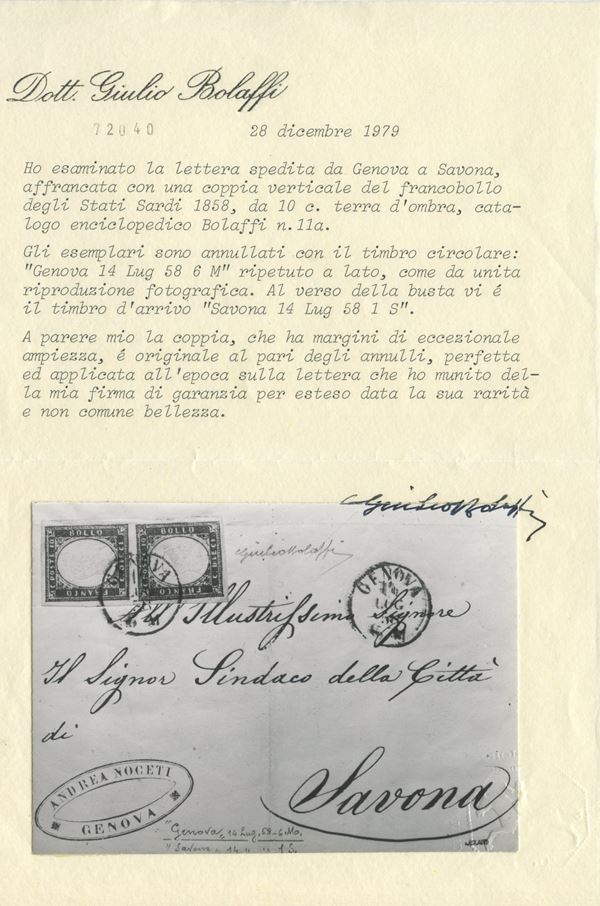 Dott. Giulio Bolaffi
72040
28 dicembre 1979
Ho esaminato la lettera spedita da Genova a Savona,
affrancata con una coppia verticale del francobollo
degli Stati Sardi 1858, da 10 c. terra d'ombra, cata-
logo enciclopedico Bolaffi n.11a.
Gli esemplari sono annullati con il timbro circolare:
"Genova 14 Lug 58 6 M" ripetuto a lato, come da unita
riproduzione fotografica. Al verso della busta vi é
il timbro d'arrivo "Savona 14 Lug 58 1 S".
A parere mio la coppia, che ha margini di eccezionale
ampiezza, é originale al pari degli annulli, perfetta
ed applicata all'epoca sulla lettera che ho munito del-
la mia firma di garanzia per esteso data la sua rarità
e non comune bellezza.
Giulio Bolaffi
BOLLO BOLLO
FRANCO FRANCO
Giulio Bolaffi
GENOVA
14
LUG
All' Illustrissimo Signore
Il Signor Sindaco della Città
di
Savona
ANDREA NOCETI
GENOVA
"Genova, 14 Lug. 58-6 Mo.
"Savona" 14 " " 1 S.